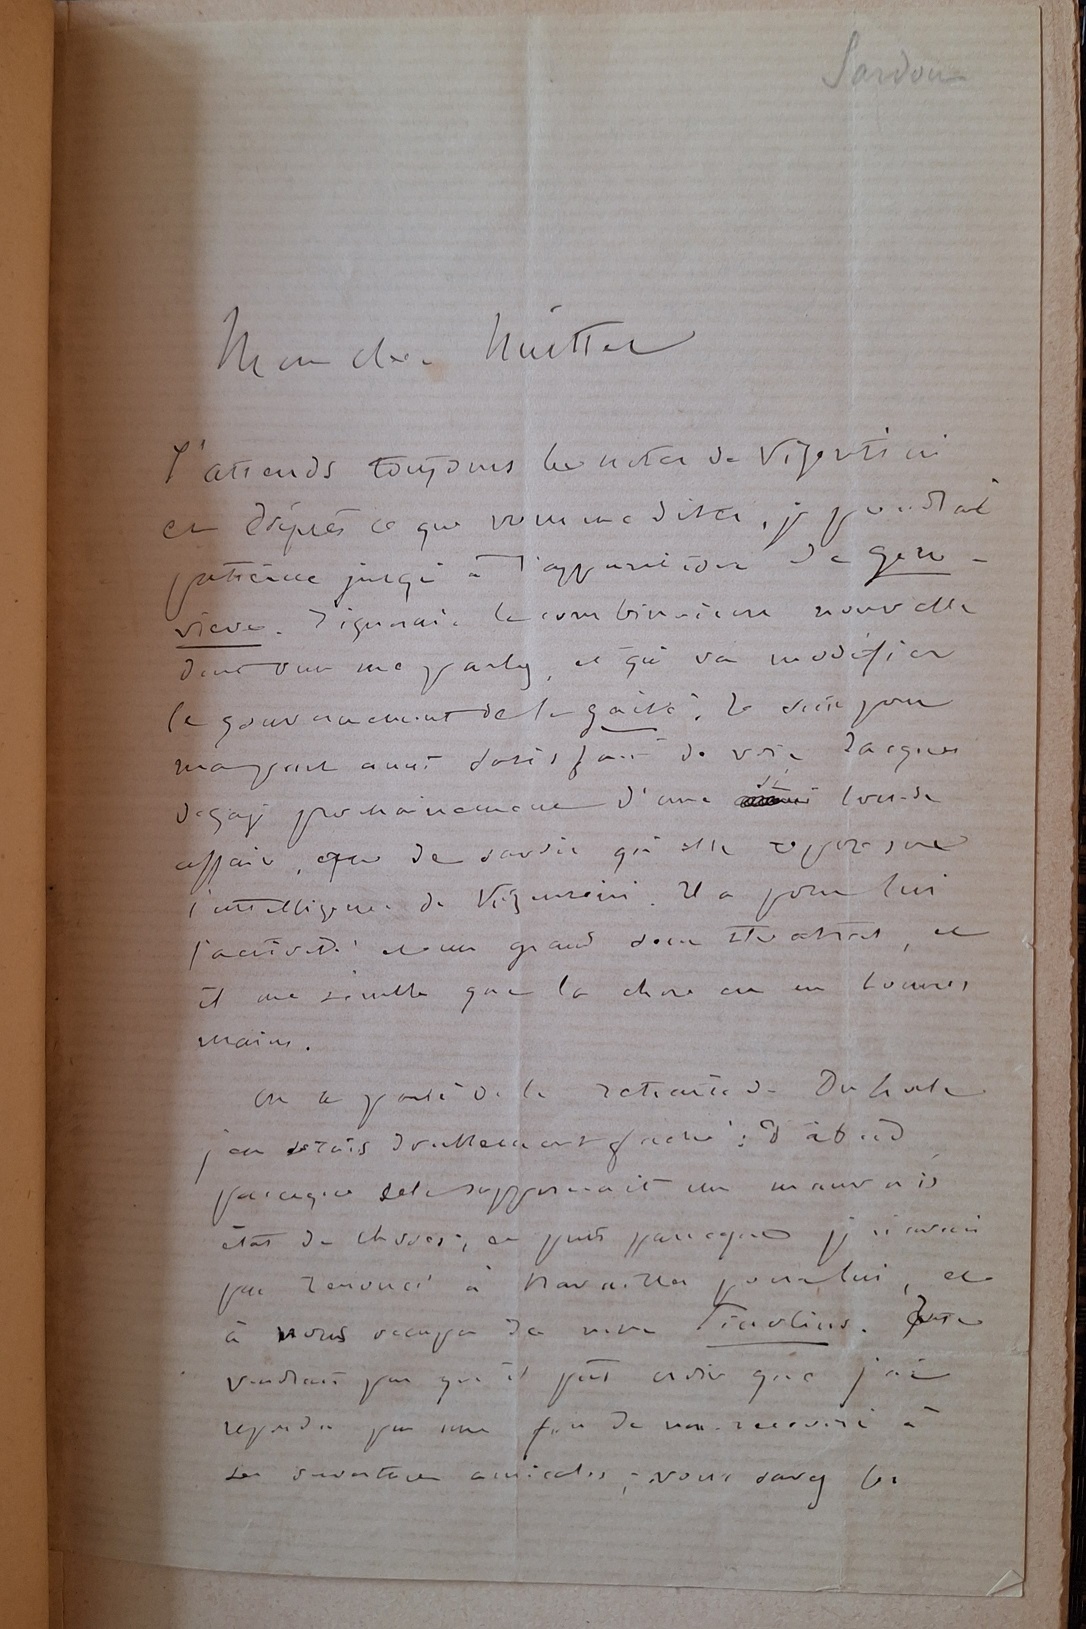 Sardou
Mon cher Nuitter
J'attends toujours les notes de Vizentini
et d'après ce que vous me dites, je prendrai
patience jusqu'à l'apparition de Gene-
viève. J'ignorais la combinaison nouvelle
dont vous me parlez, et qui va modifier
le gouvernement de la Gaité. Je suis pour
ma part aussi satisfait de voir Jacques
dégagé prochainement d'une si lourde
affaire, que de savoir qu'elle repose sur
l'intelligence de Vizentini. Il a pour lui
l'activité et un grand sens théâtral, et
il me semble que la chose est en bonnes
mains.
On a parlé de la retraite de
j'en serais doublement fâché : d'abord
parceque cela supposerait un mauvais
état de choses, et puis parceque je n'avais
pas renoncé à travailler pour lui, et
à nous occuper de
voudrais pas qu'il pût croire que j'ai
répondu par une fin de non-recevoir à
ses ouvertures amicales ; vous savez les